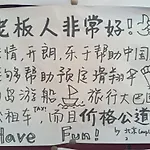 老板人非常好!
情,开朗,乐于帮助中国
够帮助预定滑翔伞
岛游船 旅行大巴
租车TAXI,而且价格公道
Have Fun! by 北京